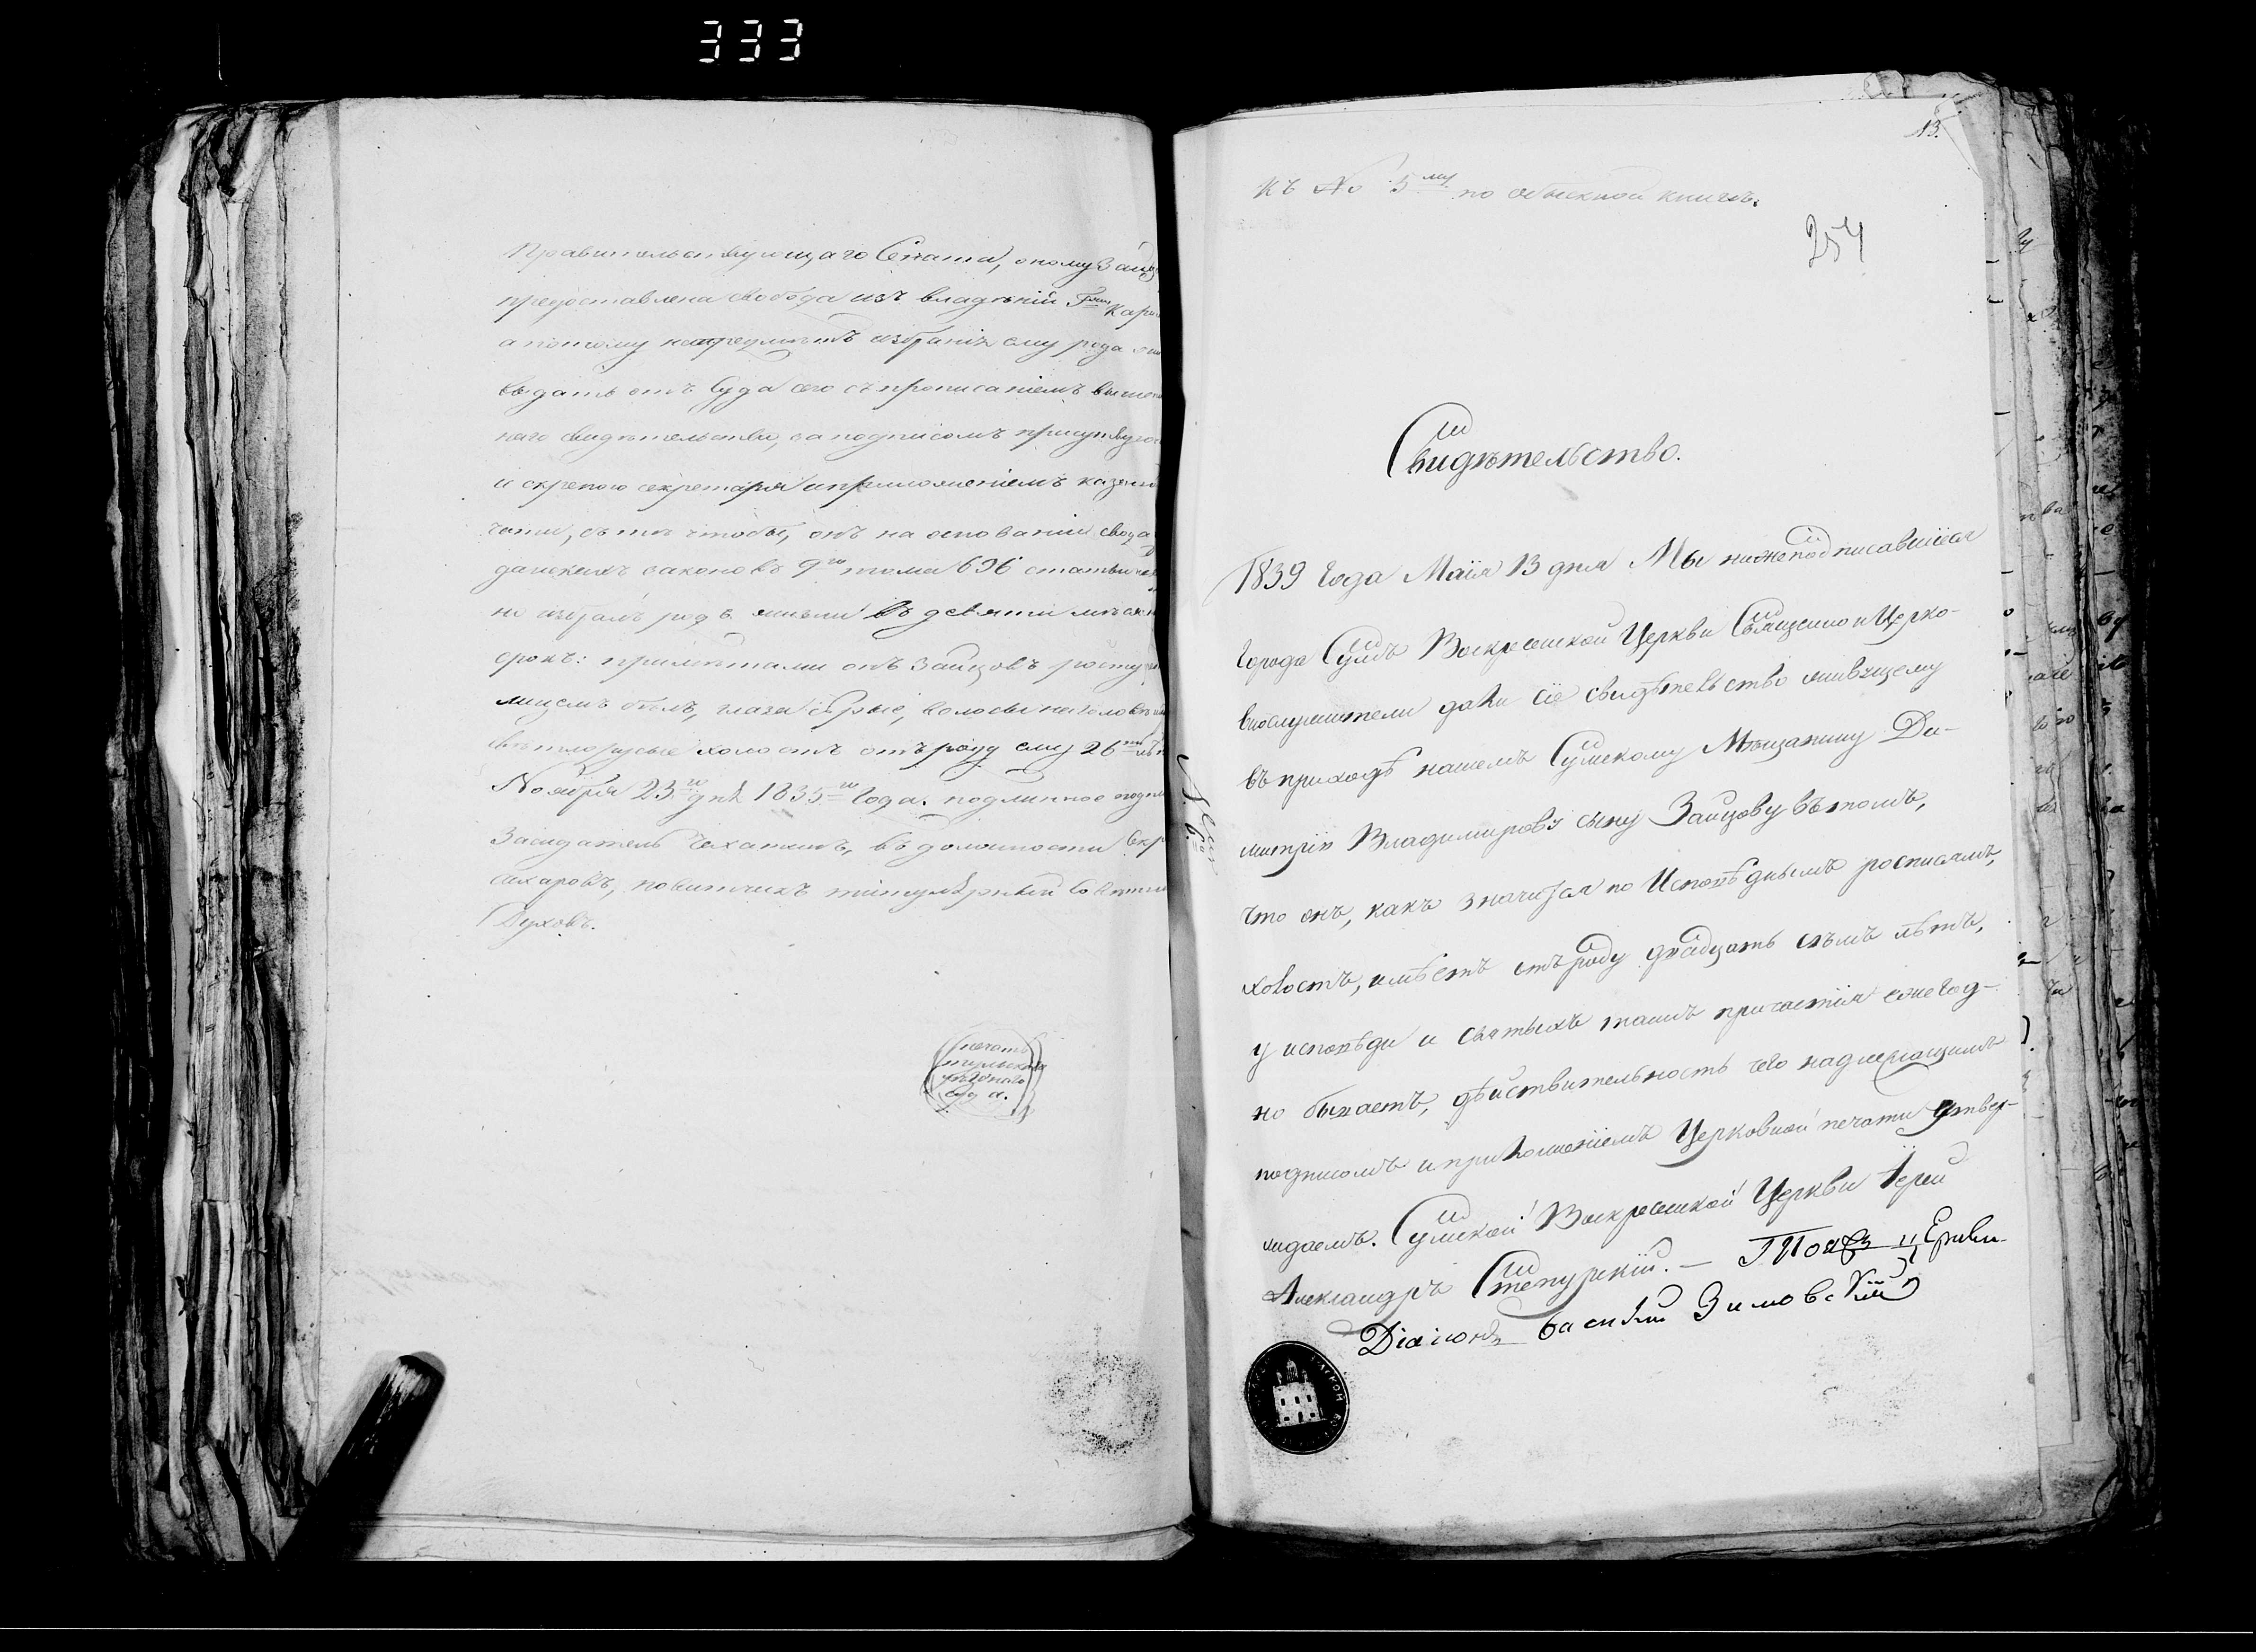 333
Правительствующаго Сената, оному Зайц
предоставлена свобода изъ владѣнiй Гжи Кар
а потому избранiя ему рода
выдать отъ Суда сего съ прописанiемъ выше
наго свидѣтельство, за подписомъ присутству
и скрепою секретаря и приложенiемъ казен
чати, съ тѣмъ чтобы, онъ на основанiи свода
данскихъ законовъ 9го тома 696 статьи
но избралъ родъ жизни въ девяти месячн
срокъ: примѣтами онъ Зайцовъ росту
лицемъ бѣлъ, глаза серые, волосы на голове
светлорусые холостъ отъ роду ему 26ть лѣ
Ноября 23го дня 1835го года. подлинное подп
Заседатель Чехаткинъ, въ должности Секр
сахаровъ, повытчикъ титулярный Совѣтни
Духовъ.
печать
уѣзднаго
суда.
13.
Къ № 5му по обыскной книгѣ.
254
Свидѣтельство.
1839 года Маiя 13 дня Мы нижеподписавшiеся
города Сумъ Воскресенской Церкви Священно и Церко-
внослужители дали сiе свидѣтельство жившему
въ приходѣ нашемъ Сумскому Мѣщанину Ди-
митрiю Владимирову сыну Зайцову въ томъ,
что онъ, какъ значится по Исповѣднымъ росписямъ,
холостъ, имѣетъ отъ роду двадцать семь лѣтъ,
у исповѣди и святыхъ таинъ причастiя ежегод-
но бываетъ, дѣйствительность чего надлежащимъ
подписомъ и приложенiемъ Церковной печати утвер-
ждаемъ. Сумской Воскресенской Церкви Iерей
Александръ Степурскiй.—
Дiаконъ Василiй Зимовскiй